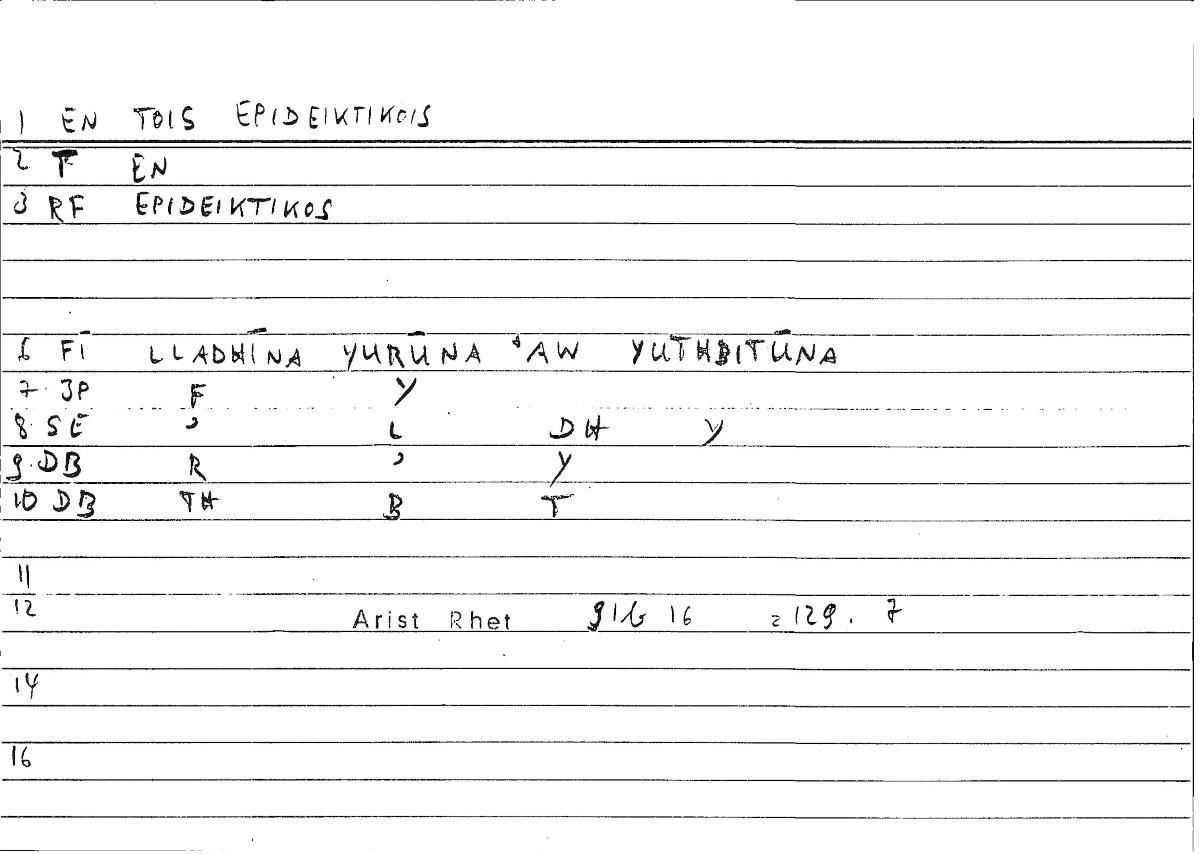 1 EN TOIS EPIDEIKTIKOIS
2 T EN
3 RF EPIDEIKTIKOS
6 FĪ LLADHĪNA YURŪNA 'AW YUTHBITŪNA
7. JP F Y
8. SE ' L DH Y
9. DB R ' Y
10 DB TH B T
11
12 Arist Rhet 91b 16 = 129. 7
14
16